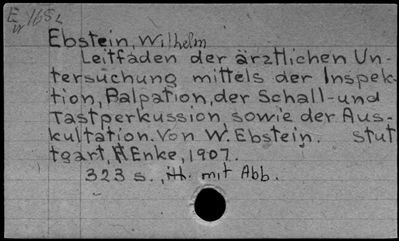 E W 165 L
Ebstein, Wilhelm
Leitfaden der ärztlichen Un-
tersuchung mittels der Inspek-
tion, Palpation, der Schall- und
Tastperkussion sowie der Aus-
kultation. Von W. Ebstein. Stut
tgart, F. Enke, 1907.
323 s., ill. mit Abb.